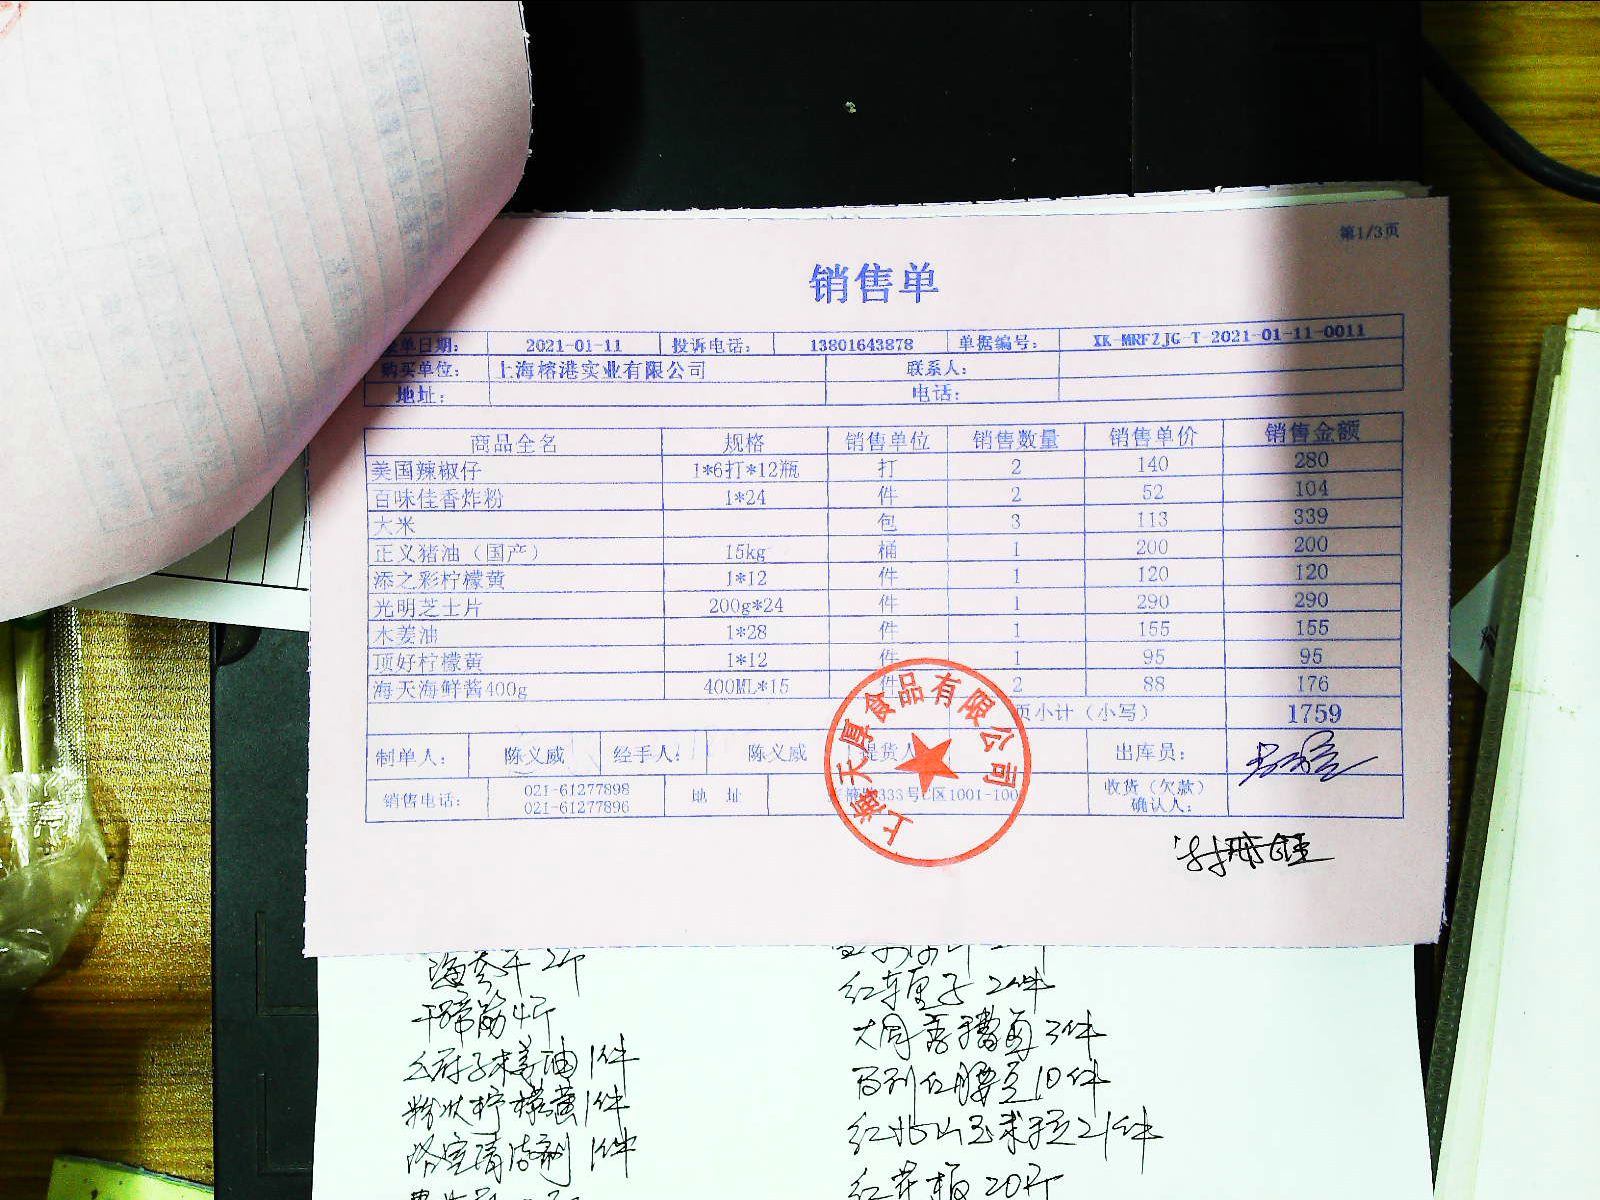 第1/3页
销售单
单日期： 2021-01-11 投诉电话： 13801643878 单据编号： XK-MRFZJG-T-2021-01-11-0011
购买单位： 上海榕港实业有限公司 联系人：
地址： 电话：
商品全名 规格 销售单位 销售数量 销售单价 销售金额
美国辣椒仔 1*6打*12瓶 打 2 140 280
百味佳香炸粉 1*24 件 2 52 104
大米 包 3 113 339
正义猪油（国产） 15kg 桶 1 200 200
添之彩柠檬黄 1*12 件 1 120 120
光明芝士片 200g*24 件 1 290 290
木姜油 1*28 件 1 155 155
顶好柠檬黄 1*12 件 1 95 95
海天海鲜酱400g 400ML*15 件 2 88 176
页小计（小写） 1759
制单人： 陈义威 经手人： 陈义威 提货人 出库员：
销售电话： 021-61277898 地 址 333号C区1001-100 收货（欠款）
021-61277896 确认人：
上海天厚食品有限公司
干蹄筋4斤
红车厘子2件
木姜油1件
粉状柠檬黄1件
红腰豆10件
清洁剂1件